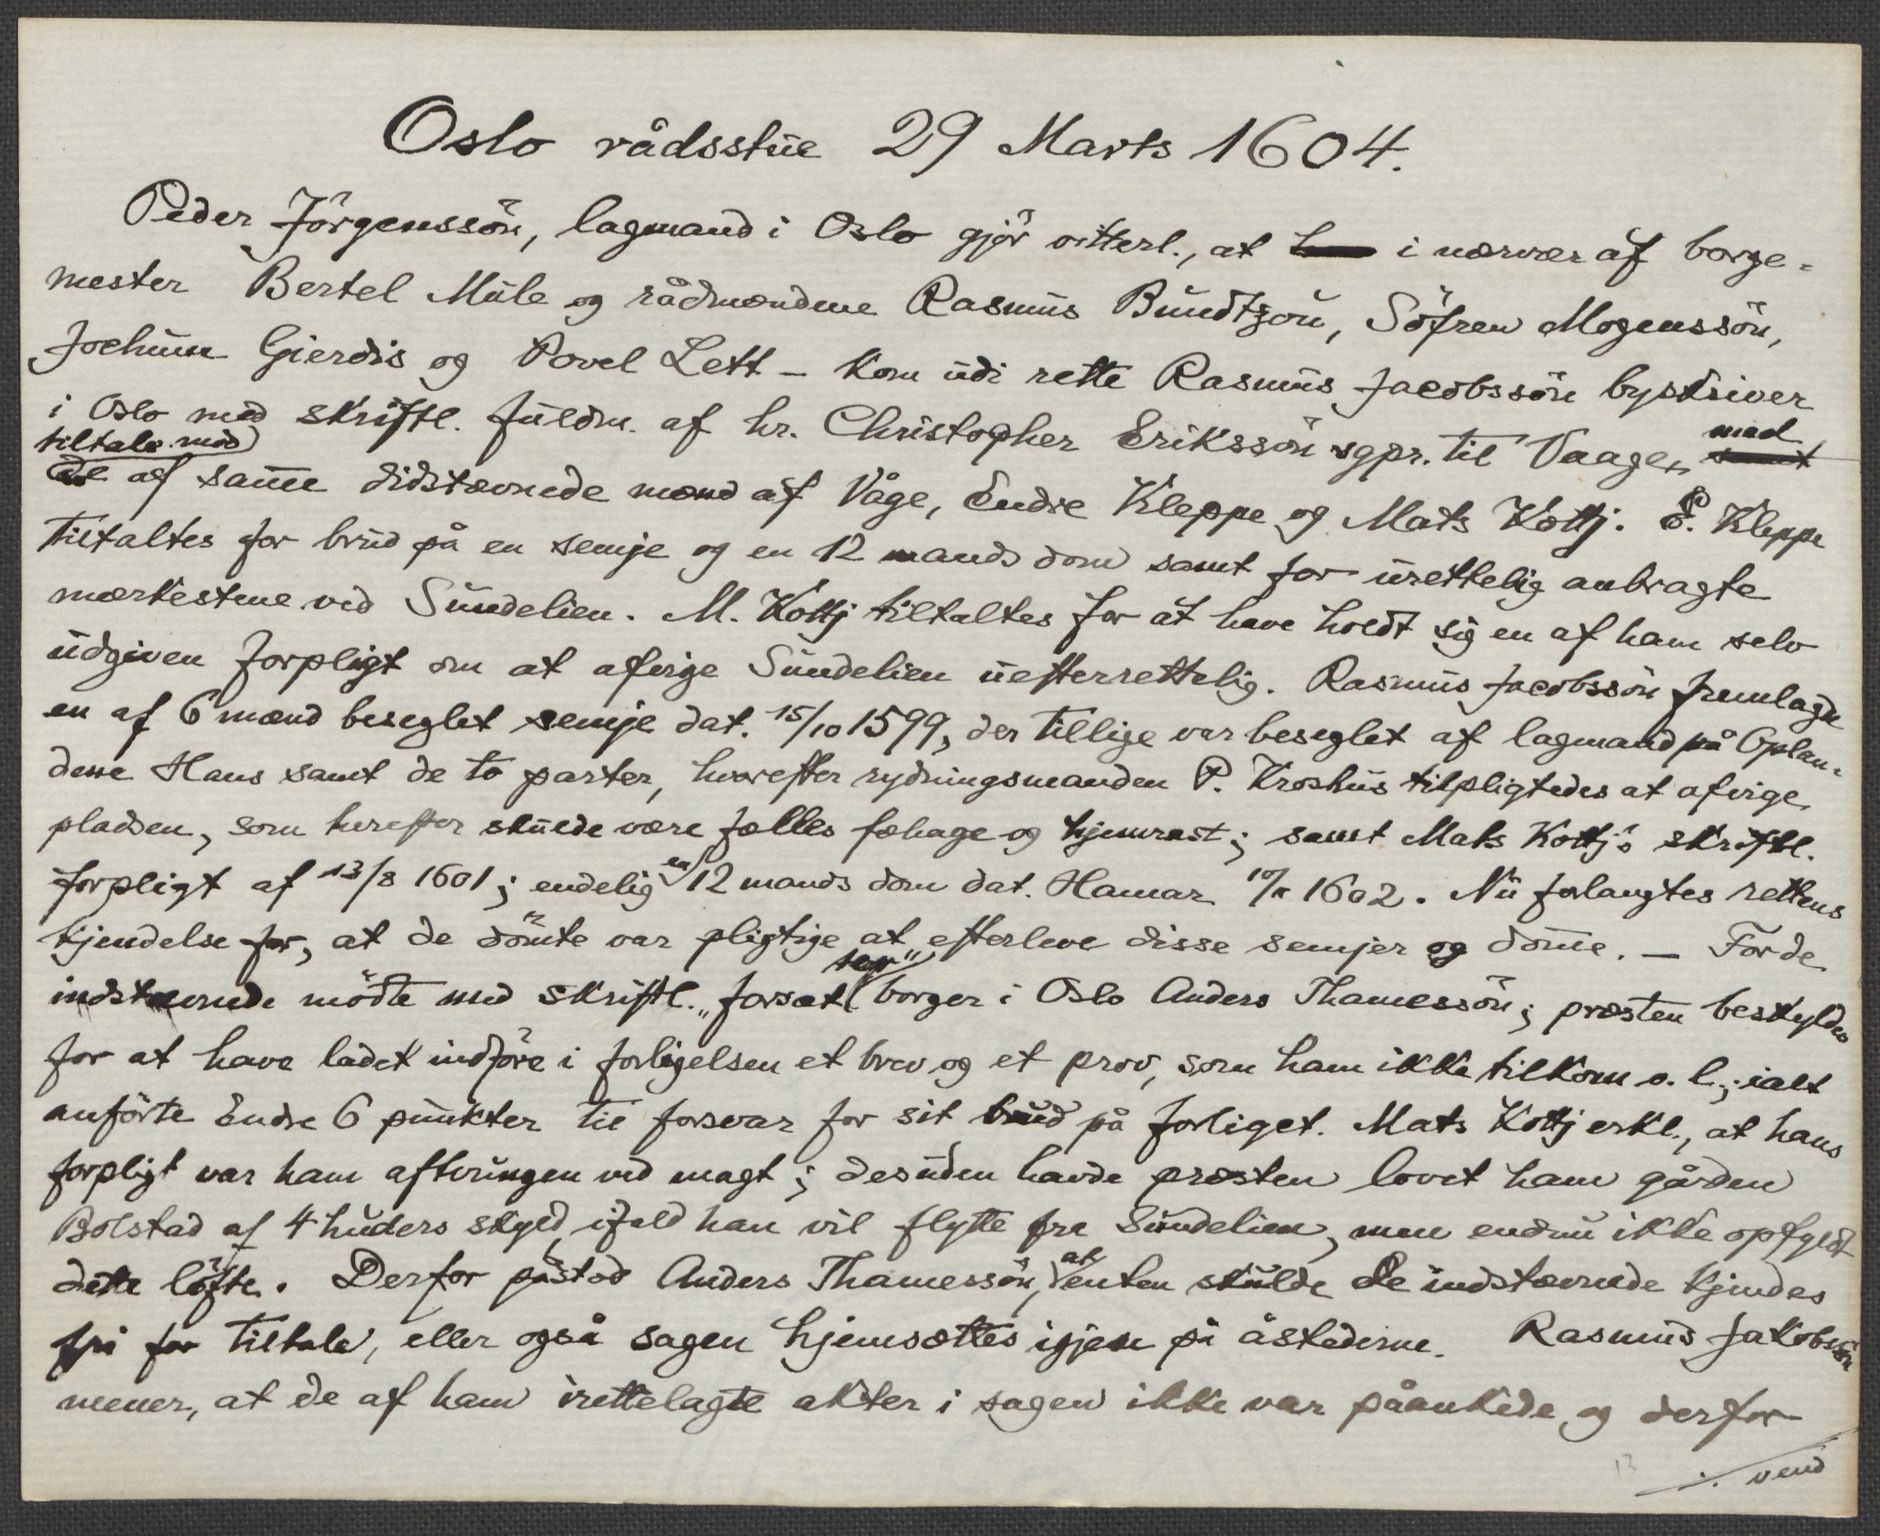 Oslo rådsstue 29 Marts 1604.
Peder Jörgenssön, lagmand i Oslo gjör vitterl., at i nærvær af borge-
mester Bertel Mule og rådmændene Rasmus Bundtzön, Söfren Mogenssön,
Jochum Gierdis og Povel Lett – kom udi rette Rasmus Jacobssön byskriver
i Oslo med skriftl. fuldm. af hr. Christopher Erikssön sgpr. til Vaage, med
tiltale mod
de af samme didstævnede mænd af Våge, Endre Kleppe og Mats Kottj. E. Kleppe
tiltaltes for brud på en semje og en 12 mands dom samt for urettelig anbragte
mærkestene ved Sundelien. M. Kottj tiltaltes for at have holdt sig en af ham selv
udgiven forpligt om at afvige Sundelien uefterrettelig. Rasmus Jacobssön fremlagde
en af 6 mænd beseglet semje dat. 15/10 1599, der tillige var beseglet af lagmand på Oplan-
dene Hans samt de to parter, hvorefter rydningsmanden P. Kroshus tilpligtedes at afvige
pladsen, som herefter skulde være fælles fæhage og hjemrast; samt Mats Kottj's skriftl.
forpligt af 13/8 1601; endelig en 12 mands dom dat. Hamar 1602. Nu forlangtes rettens
kjendelse for, at de dömte var pligtige at efterleve disse semjer og domme. – For de
indstævnede mödte med skriftl. „forsætt borger i Oslo Anders Thamessön; præsten beskyldes
for at have ladet indföre i forligelsen et brev og et prov, som ham ikke tilkom o. l.; ialt
anförte Endre 6 punkter til forsvar for sit brud på forliget. Mats Kottj erkl., at hans
forpligt var ham aftvungen ved magt; desuden havde præsten lovet ham gården
Bolstad af 4 huders skyld, ifald han vil flytte fra Sundelien, men endnu ikke opfyldt
dette löfte. Derfor påstod Anders Thamessön, at enten skulde de indstævnede kjendes
fri for tiltale, eller også sagen hjemsættes igjen på åstederne. Rasmus Jakobssön
mener, at de af ham irettelagte akter i sagen ikke var påankede, og derfor
·/. vend
13